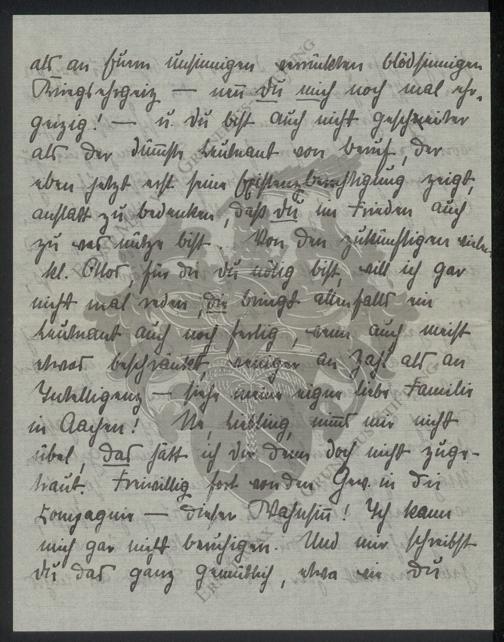 als an Eurem unsinnigen verrückten blödsinnigen
Kriegsehrgeiz — nen Du mich noch mal ehr-
geizig! — u. Du bist auch nicht gescheiter
als der dümmste Leutnant von Beruf, der
eben jetzt erst seine Existenzberechtigung zeigt,
anstatt zu bedenken, daß Du im Frieden auch
zu was nütze bist. Von den zukünftigen vielen
kl. Ottos, für die Du nötig bist, will ich gar
nicht mal reden, die bringt allenfalls ein
Leutnant auch noch fertig, wenn auch meist
etwas beschränkt, weniger an Zahl als an
Intelligenz — siehe meine eigne liebe Familie
in Aachen! Ne, Liebling, nimms mir nicht
übel, das hätt ich Dir denn doch nicht zuge-
traut. Freiwillig fort von den Gew. in die
Compagnie — dieser Wahnsinn! Ich kann
mich gar nicht beruhigen. Und mir schreibst
Du das ganz gemütlich, etwa wie Du